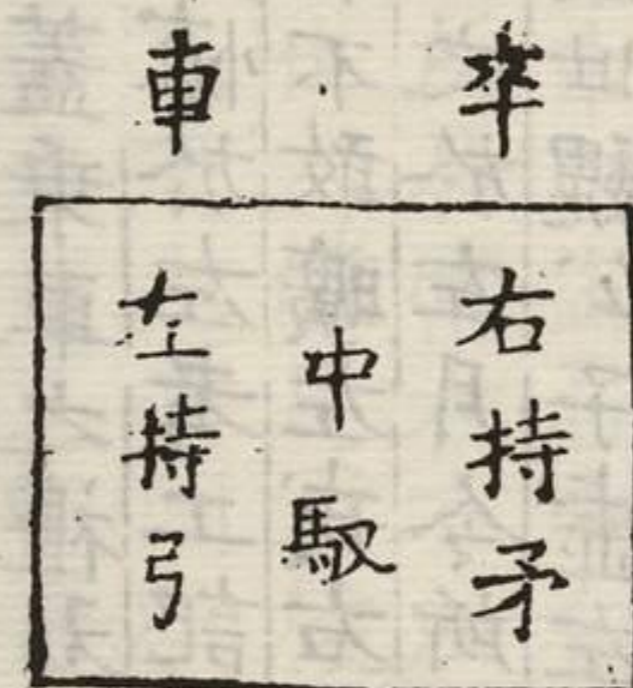 卒車
右持矛
中馭
左持弓